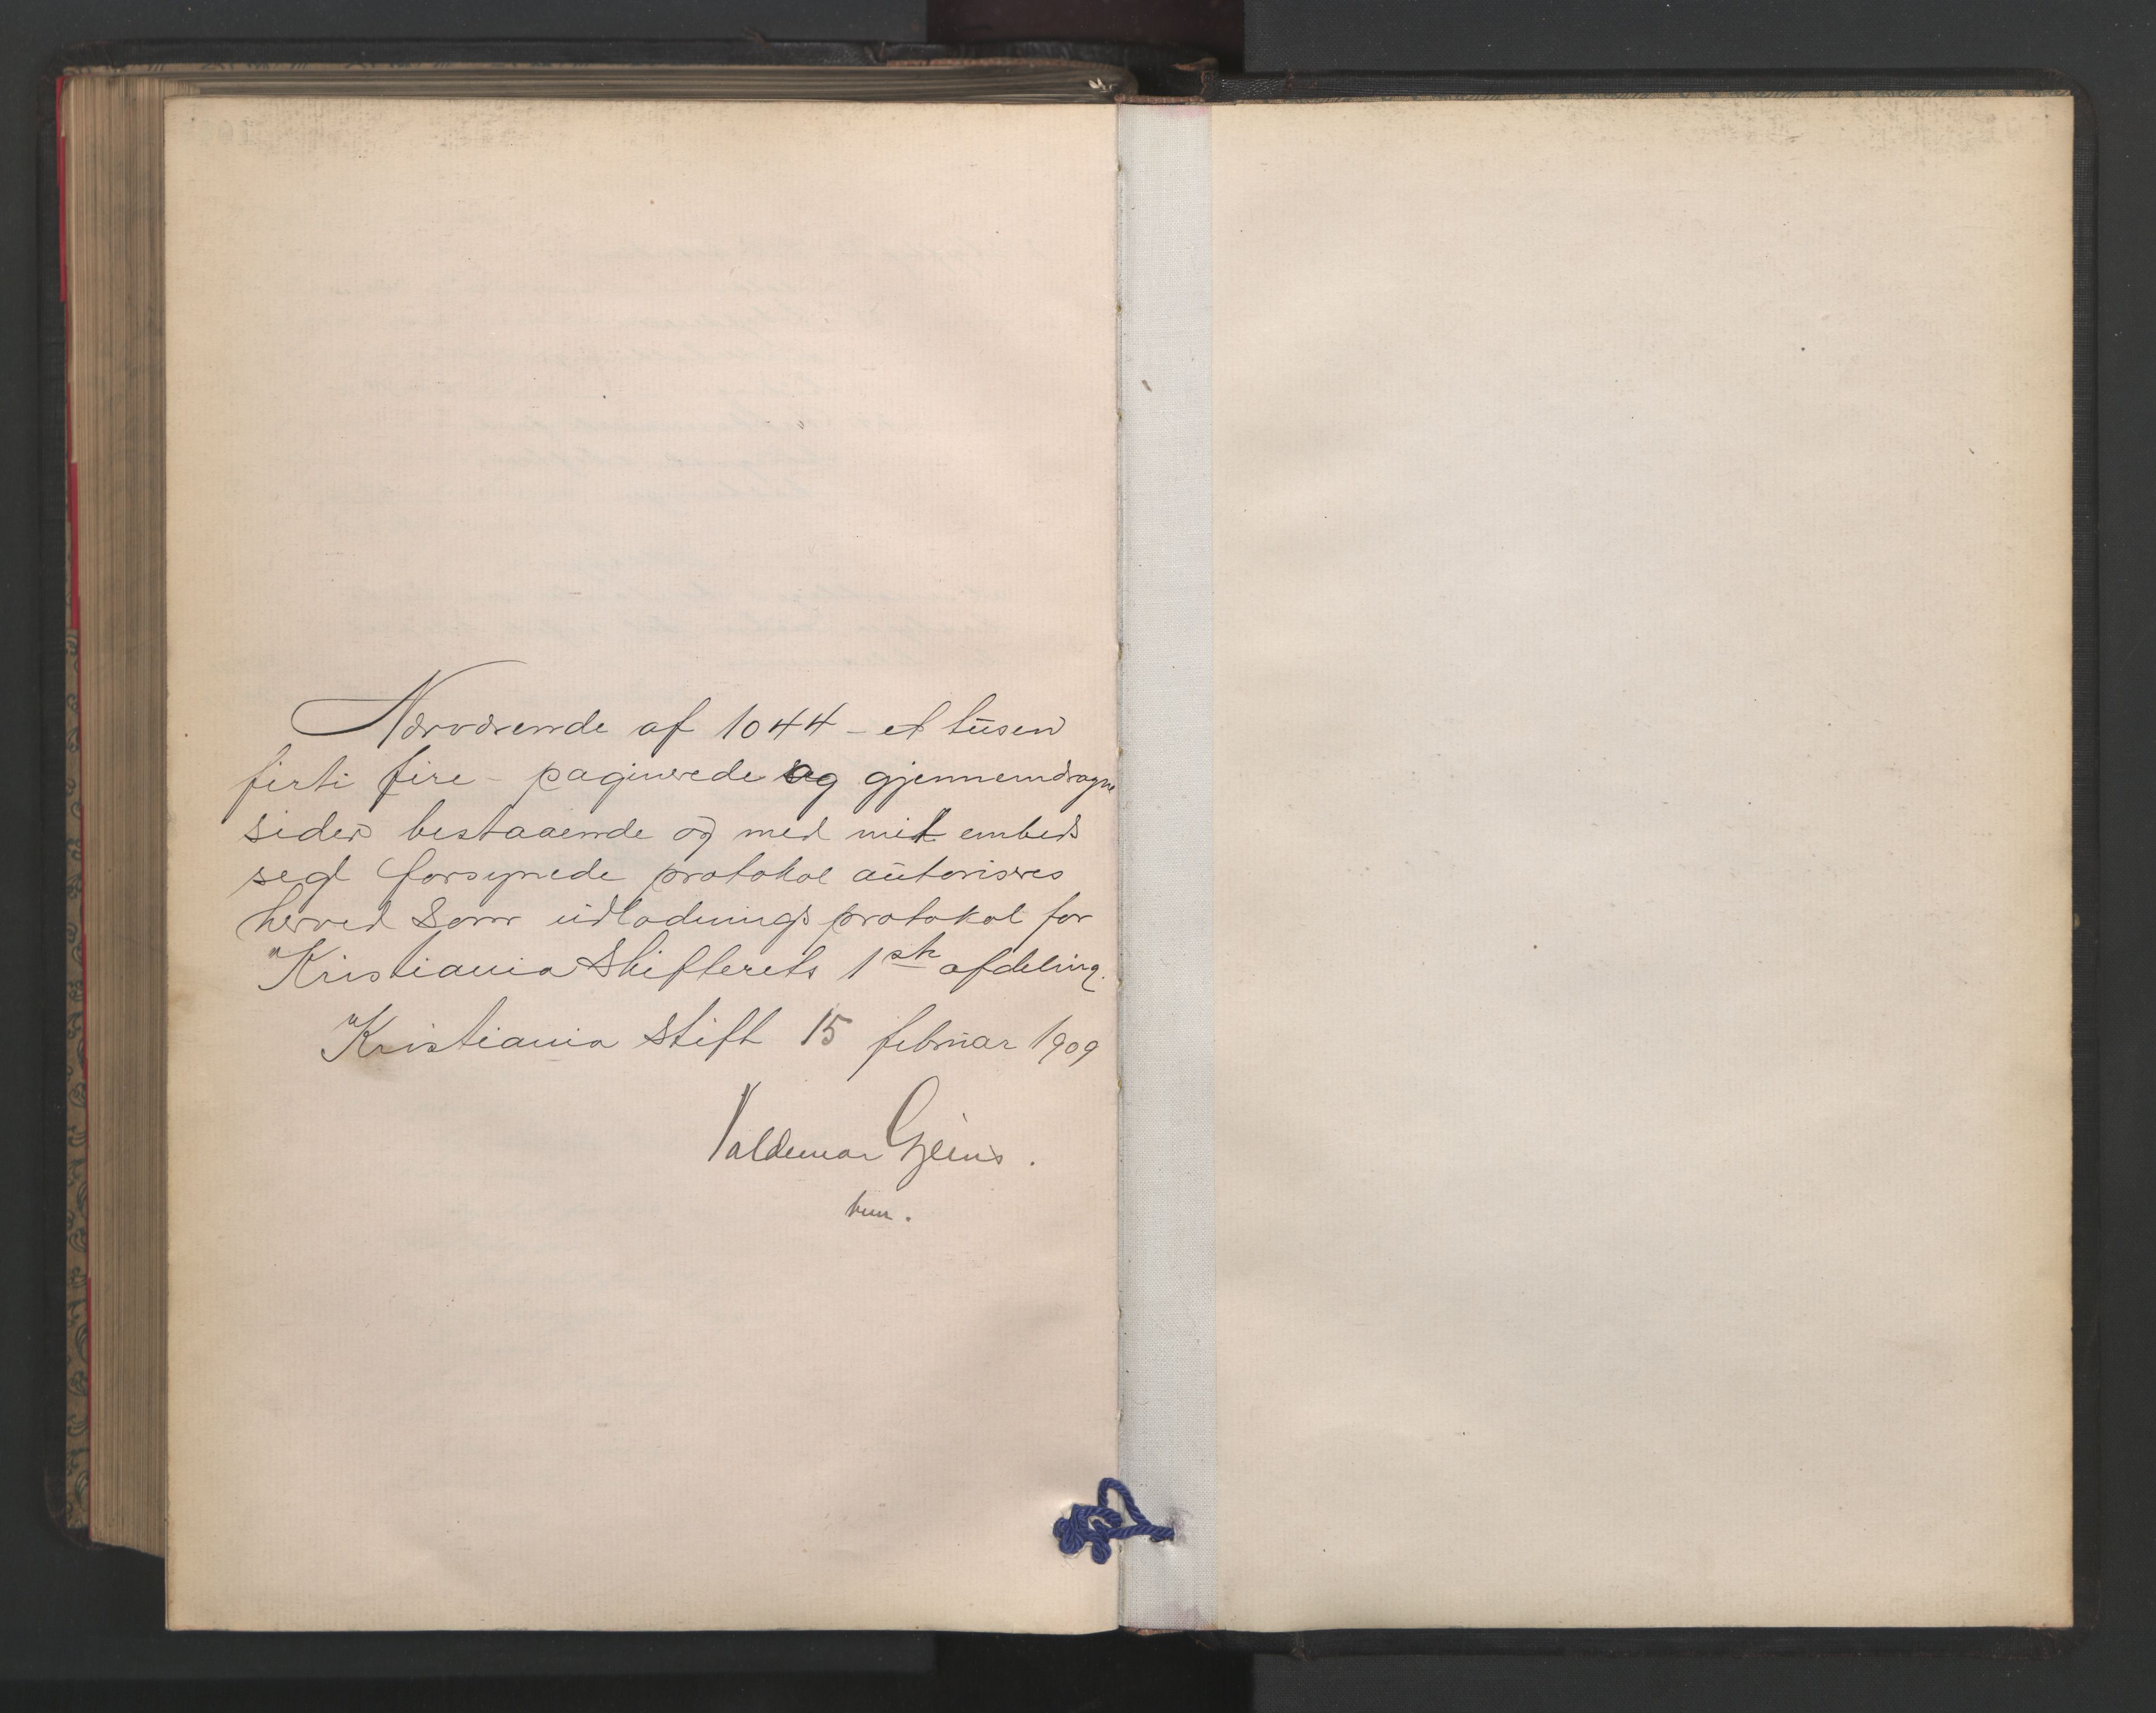 Nærværende af 1044 – et tusen
firti fire – paginerede og gjennemdragne
sider bestaaende og med mit embeds
segl forsynede protokol autoriseres
herved som udlodningsprotokol for
Kristiania Skifterets 1ste afdeling.
Kristiania Stift 15 februar 1909
Valdemar